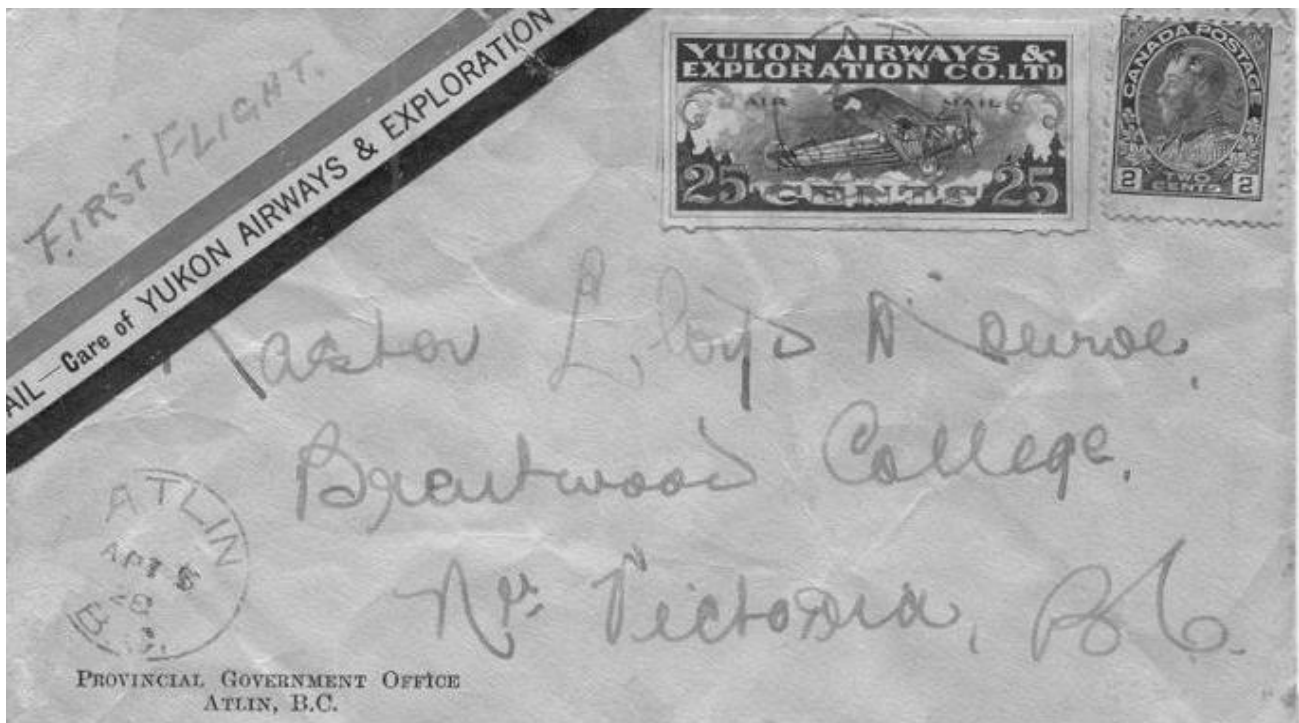 FIRST FLIGHT.
AIL—Care of YUKON AIRWAYS & EXPLORATION
YUKON AIRWAYS &
EXPLORATION CO. LTD
AIR MAIL
25 CENTS 25
CANADA POSTAGE
2 TWO CENTS 2
Master Lloyd
Brentwood College.
Nr. Victoria, B.C.
ATLIN
B.C.
PROVINCIAL GOVERNMENT OFFICE
ATLIN, B.C.